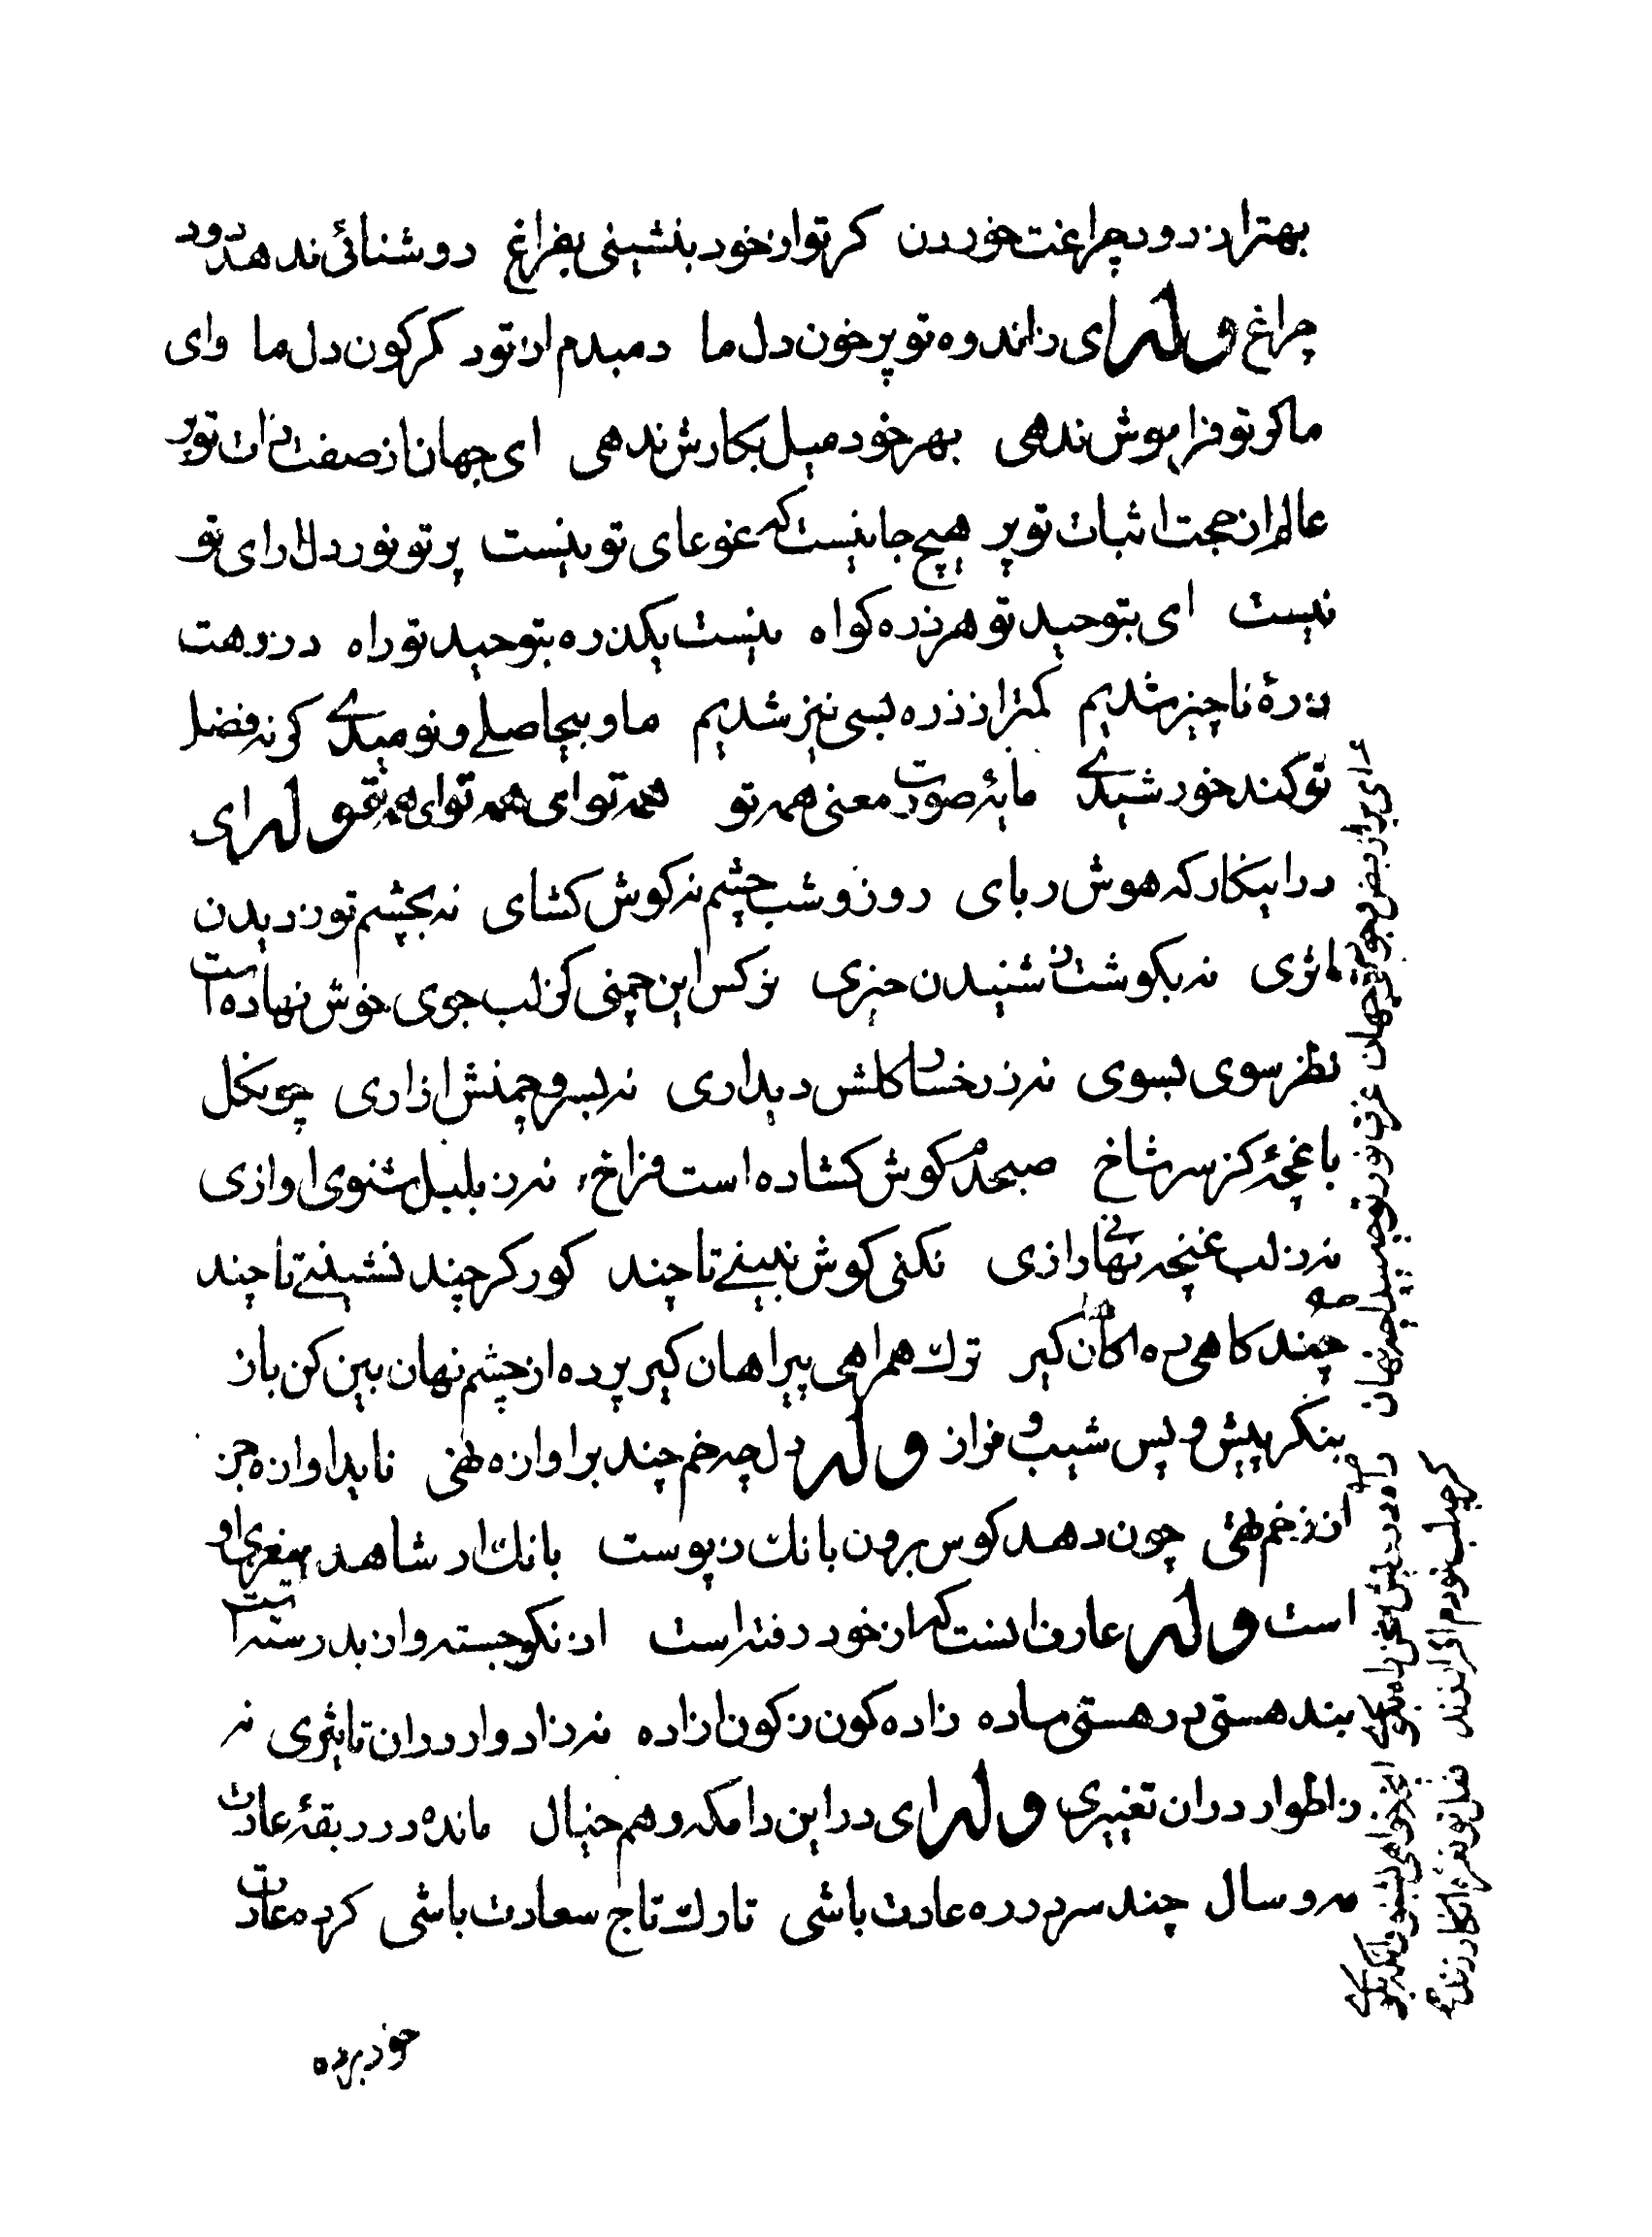 بهتر از دود چراغت خوردن کر تو از خود بنشینی بفراغ روشنائی ندهد دود
چراغ وله ای ز اندوه تو پر خون دل ما دمبدم از تو دکرکون دل ما وای
ما کر تو فراموش ندهی بهر خود میل بکارش ندهی ای جهان از صفت ذات تو پر
عالم از حجت اثبات تو پر هیچ جا نیست که غوغای تو نیست پرتو نور دلارای تو
نیست ای بتوحید تو هر ذره کواه نیست یکذره بتوحید تو راه در رهت
ذرهٔ ناچیز شدیم کمتر از ذره بسی نیز شدیم ما و بیحاصلے و نومیدے کر نه فضل
تو کند خورشیدے مایهٔ صورت معنی همه تو همه تو ای همه تو ای همه تو وله ای
درا ینکارکه هوش ربای روز و شب چشم نه کوش کشای نه بچشم تو ز دیدن
اثری نه بکوشت ز شنیدن خبری نرکس این چمنی کز لب جوی خوش نهاده است
نظر سوی بسوی نه ز رخسار کلش دیداری نه بسرو چمنش ازاری چو نکل
باغچهٔ کز سر شاخ صبحدم کوش کشاده است فراخ نه ز بلبل شنوی اوازی
نه ز لب غنچه نهانی رازی نکنی کوش نبینے تا چند کور کر چند نشینے تا چند
چند کاهی ره اکاهان کیر ترك همراهی پیراهان کیر پرده از چشم نهان بین کن باز
بنکر پیش و پس شیب و فراز وله دلچه خم چند بر اوازه طهی ناید اوازه جز
از زخم طهی چون دهد کوس برون بانك ز پوست بانك او شاهد بیمغزی او
است وله عارف انست که از خود رفته است از نکو جسته و از بد رسته است
بند هستی بر هستی ساده زاده کون ز کون ازاده نه ز ادوار دران تاثیری نه
ز اطوار دران تغییری وله ای در این دامکه وهم خیال مانده در ربقهٔ عادت
مه و سال چند سر بر ره عادت باشی تارك تاج سعادت باشی کرده عادت
خود برده